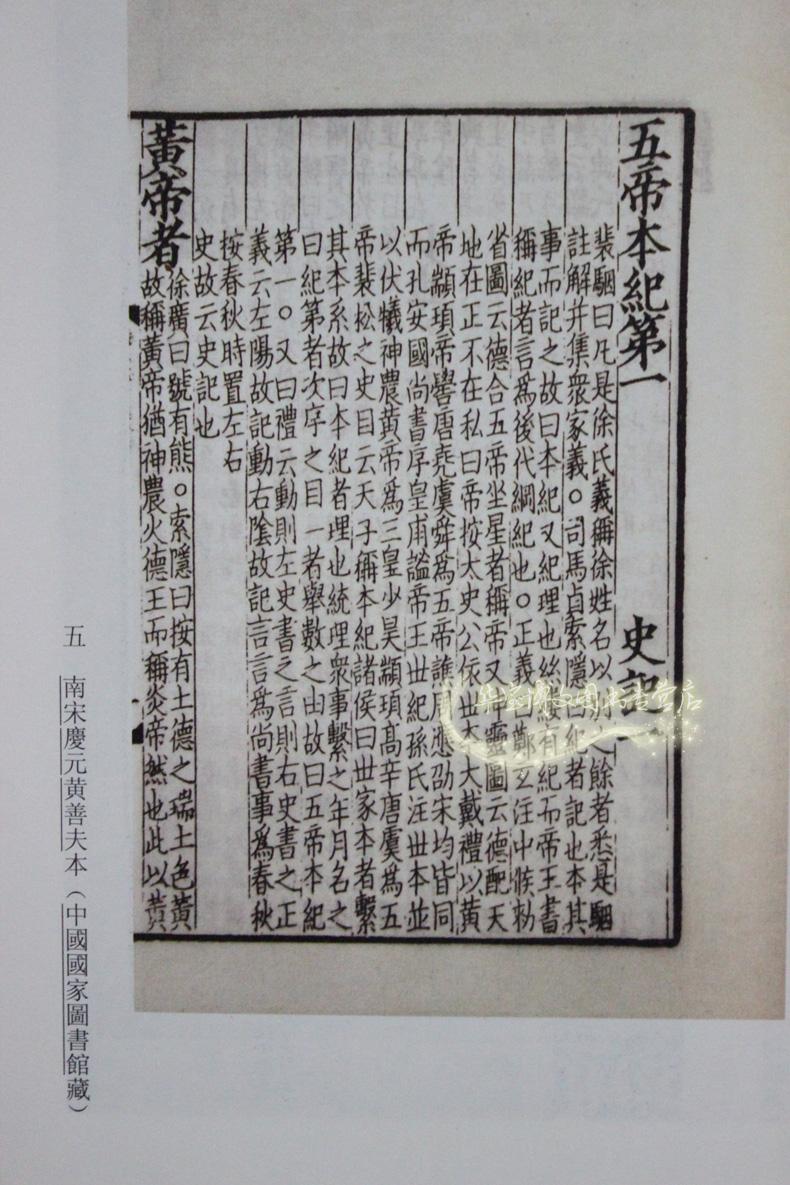 五帝本紀第一 史記一
裴駰曰凡是徐氏義稱徐姓名以別之餘者悉是駰
註解并集衆家義○司馬貞索隱曰紀者記也本其
事而記之故曰本紀又紀理也絲縷有紀而帝王書
稱紀者言爲後代綱紀也○正義曰鄭玄注中候勑
省圖云德合五帝坐星者稱帝又坤靈圖云德配天
地在正不在私曰帝按太史公依世本大戴禮以黃
帝顓頊帝嚳唐堯虞舜爲五帝譙周應劭宋均皆同
而孔安國尚書序皇甫謐帝王世紀孫氏注世本並
以伏犧神農黃帝爲三皇少昊顓頊高辛唐虞爲五
帝裴松之史目云天子稱本紀諸侯曰世家本者繫
其本系故曰本紀者理也統理衆事繫之年月名之
曰紀第者次序之目一者舉數之由故曰五帝本紀
第一○又曰禮云動則左史書之言則右史書之正
義云左陽故記動右陰故記言言爲尚書事爲春秋
按春秋時置左右
史故云史記也
黃帝者
徐廣曰號有熊○索隱曰按有土德之瑞土色黃
故稱黃帝猶神農火德王而稱炎帝然也此以黃
五 南宋慶元黃善夫本（中國國家圖書館藏）